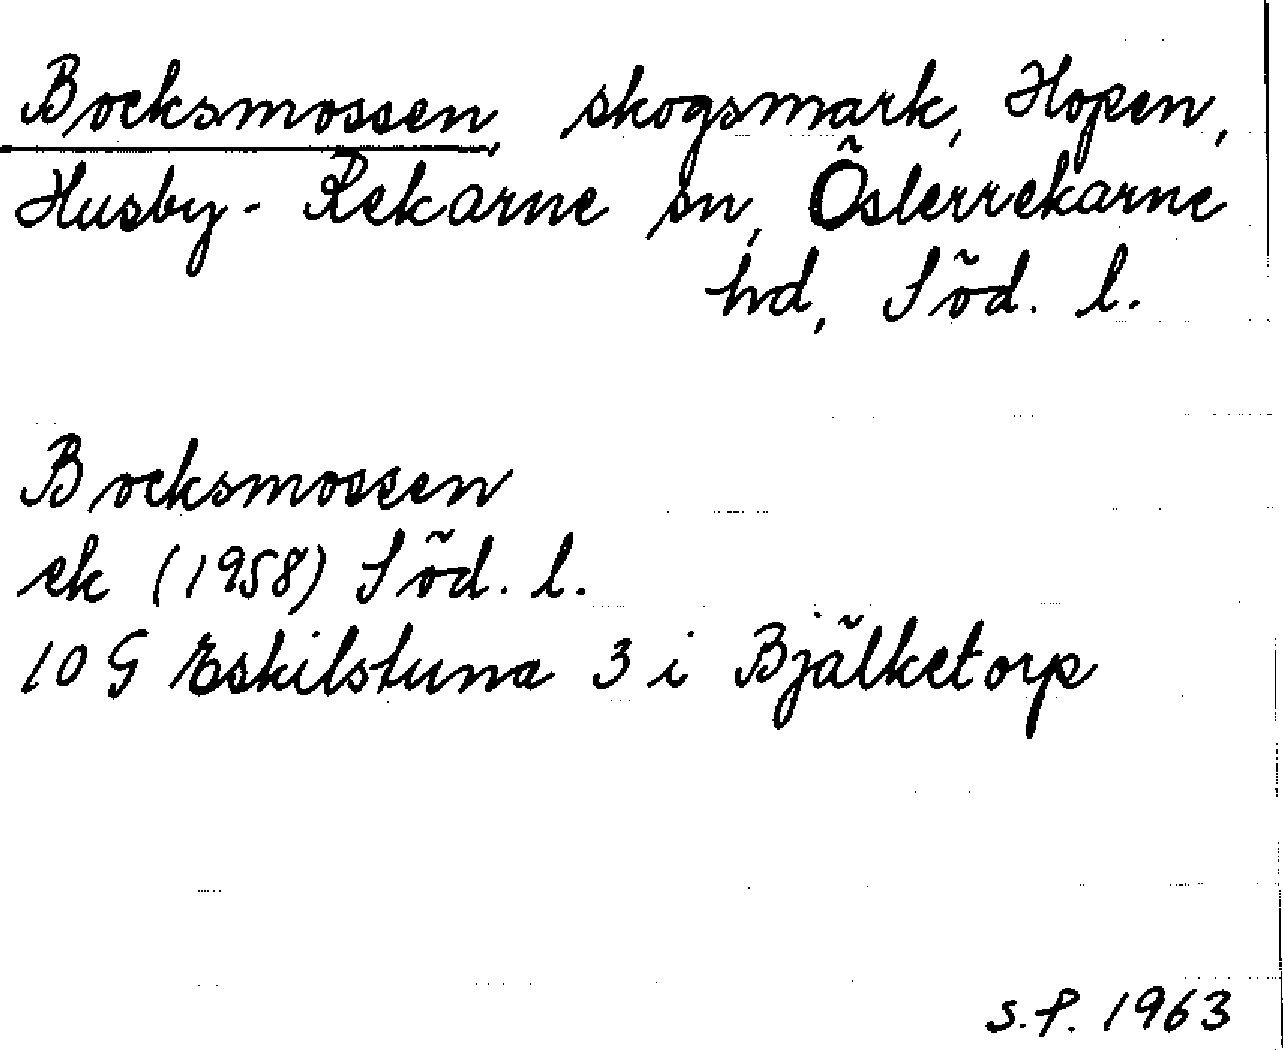 Bocksmossen, skogsmark, Hopen,
Husby-Rekarne sn, Österrekarne
hd, Söd. l.
Bocksmossen
ek (1958) Söd. l.
10 G Eskilstuna 3 i Bjälketorp
S.P. 1963